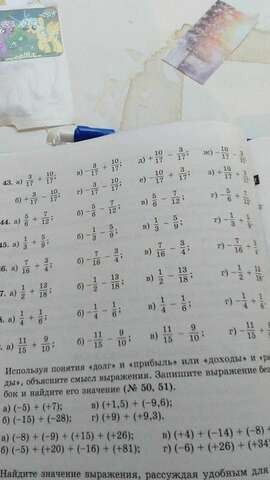 43. а) 3/17 + 10/17; в) −3/17 + 10/17; д) +10/17 − 3/17; ж) −10/17 − 3/17
б) −3/17 − 10/17; г) 3/17 − 10/17; е) −10/17 + 3/17; з) +10/17 + 3/17
44. а) 5/6 + 7/12; б) −5/6 − 7/12; в) 5/6 − 7/12; г) −5/6 + 7/12
45. а) 1/3 + 5/9; б) −1/3 − 5/9; в) 1/3 − 5/9; г) −1/3 + 5/9
6. а) 7/16 + 3/4; б) −7/16 − 3/4; в) 7/16 − 3/4; г) −7/16 + 3/4
7. а) 1/2 + 13/18; б) −1/2 − 13/18; в) 1/2 − 13/18; г) −1/2 + 13/18
а) 1/4 + 1/6; б) −1/4 − 1/6; в) 1/4 − 1/6; г) −1/4 + 1/6
а) 11/15 + 9/10; б) −11/15 − 9/10; в) 11/15 − 9/10; г) −11/15 +
Используя понятия «долг» и «прибыль» или «доходы» и
ды», объясните смысл выражения. Запишите выражение без
бок и найдите его значение (№ 50, 51).
а) (−5) + (+7); в) (+1,5) + (−9,6);
б) (−15) + (−28); г) (+9) + (+9,3).
а) (−8) + (−9) + (+15) + (+26); в) (+4) + (−14) + (−8) +
б) (−5) + (+20) + (−16) + (+81); г) (−6) + (+26) + (+34
Найдите значение выражения, рассуждая удобным для